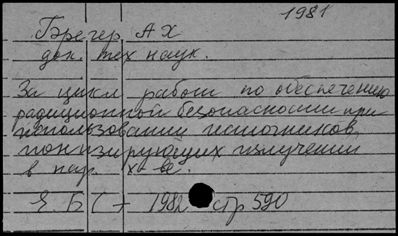 1981
Брегер, А Х
док. тех наук.
За цикл работ по обеспечению
радиционной безопасности при
использовании источников,
ионизирующих излучений
в нар. х-ве.
Е Б С - 1982 стр 590